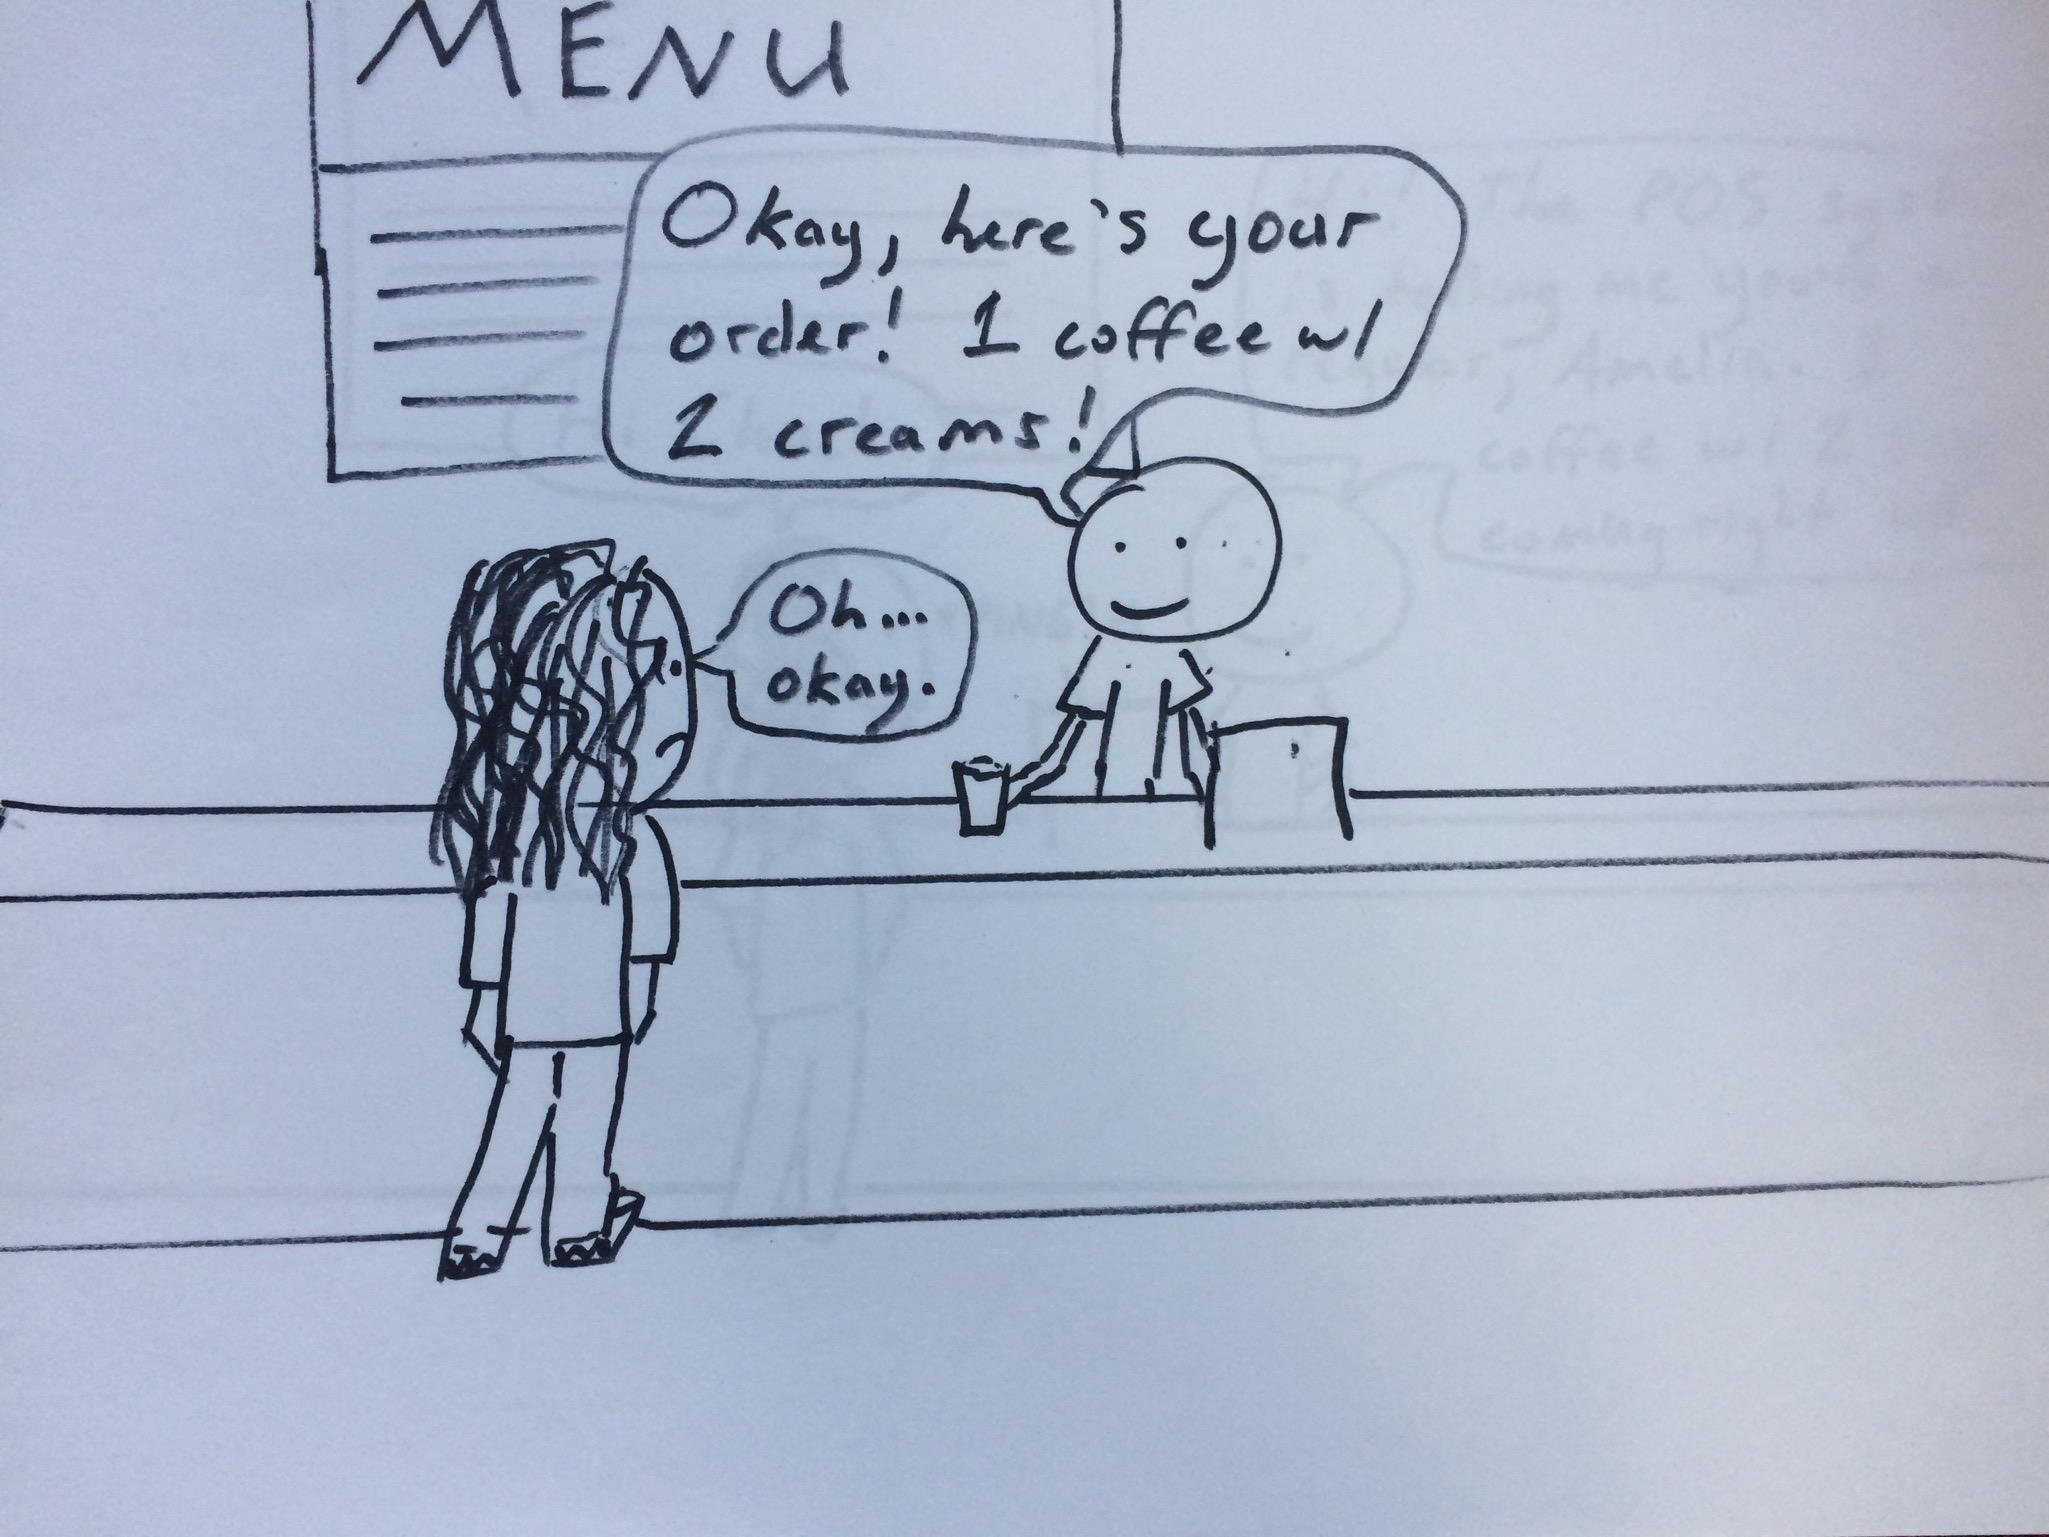 MENU
Okay, here's your
order! 1 coffee w/
2 creams!
Oh...
okay.
Hi! The POS
is telling me you're a
regular, Amelia. 1
coffee w/ 2
coming right